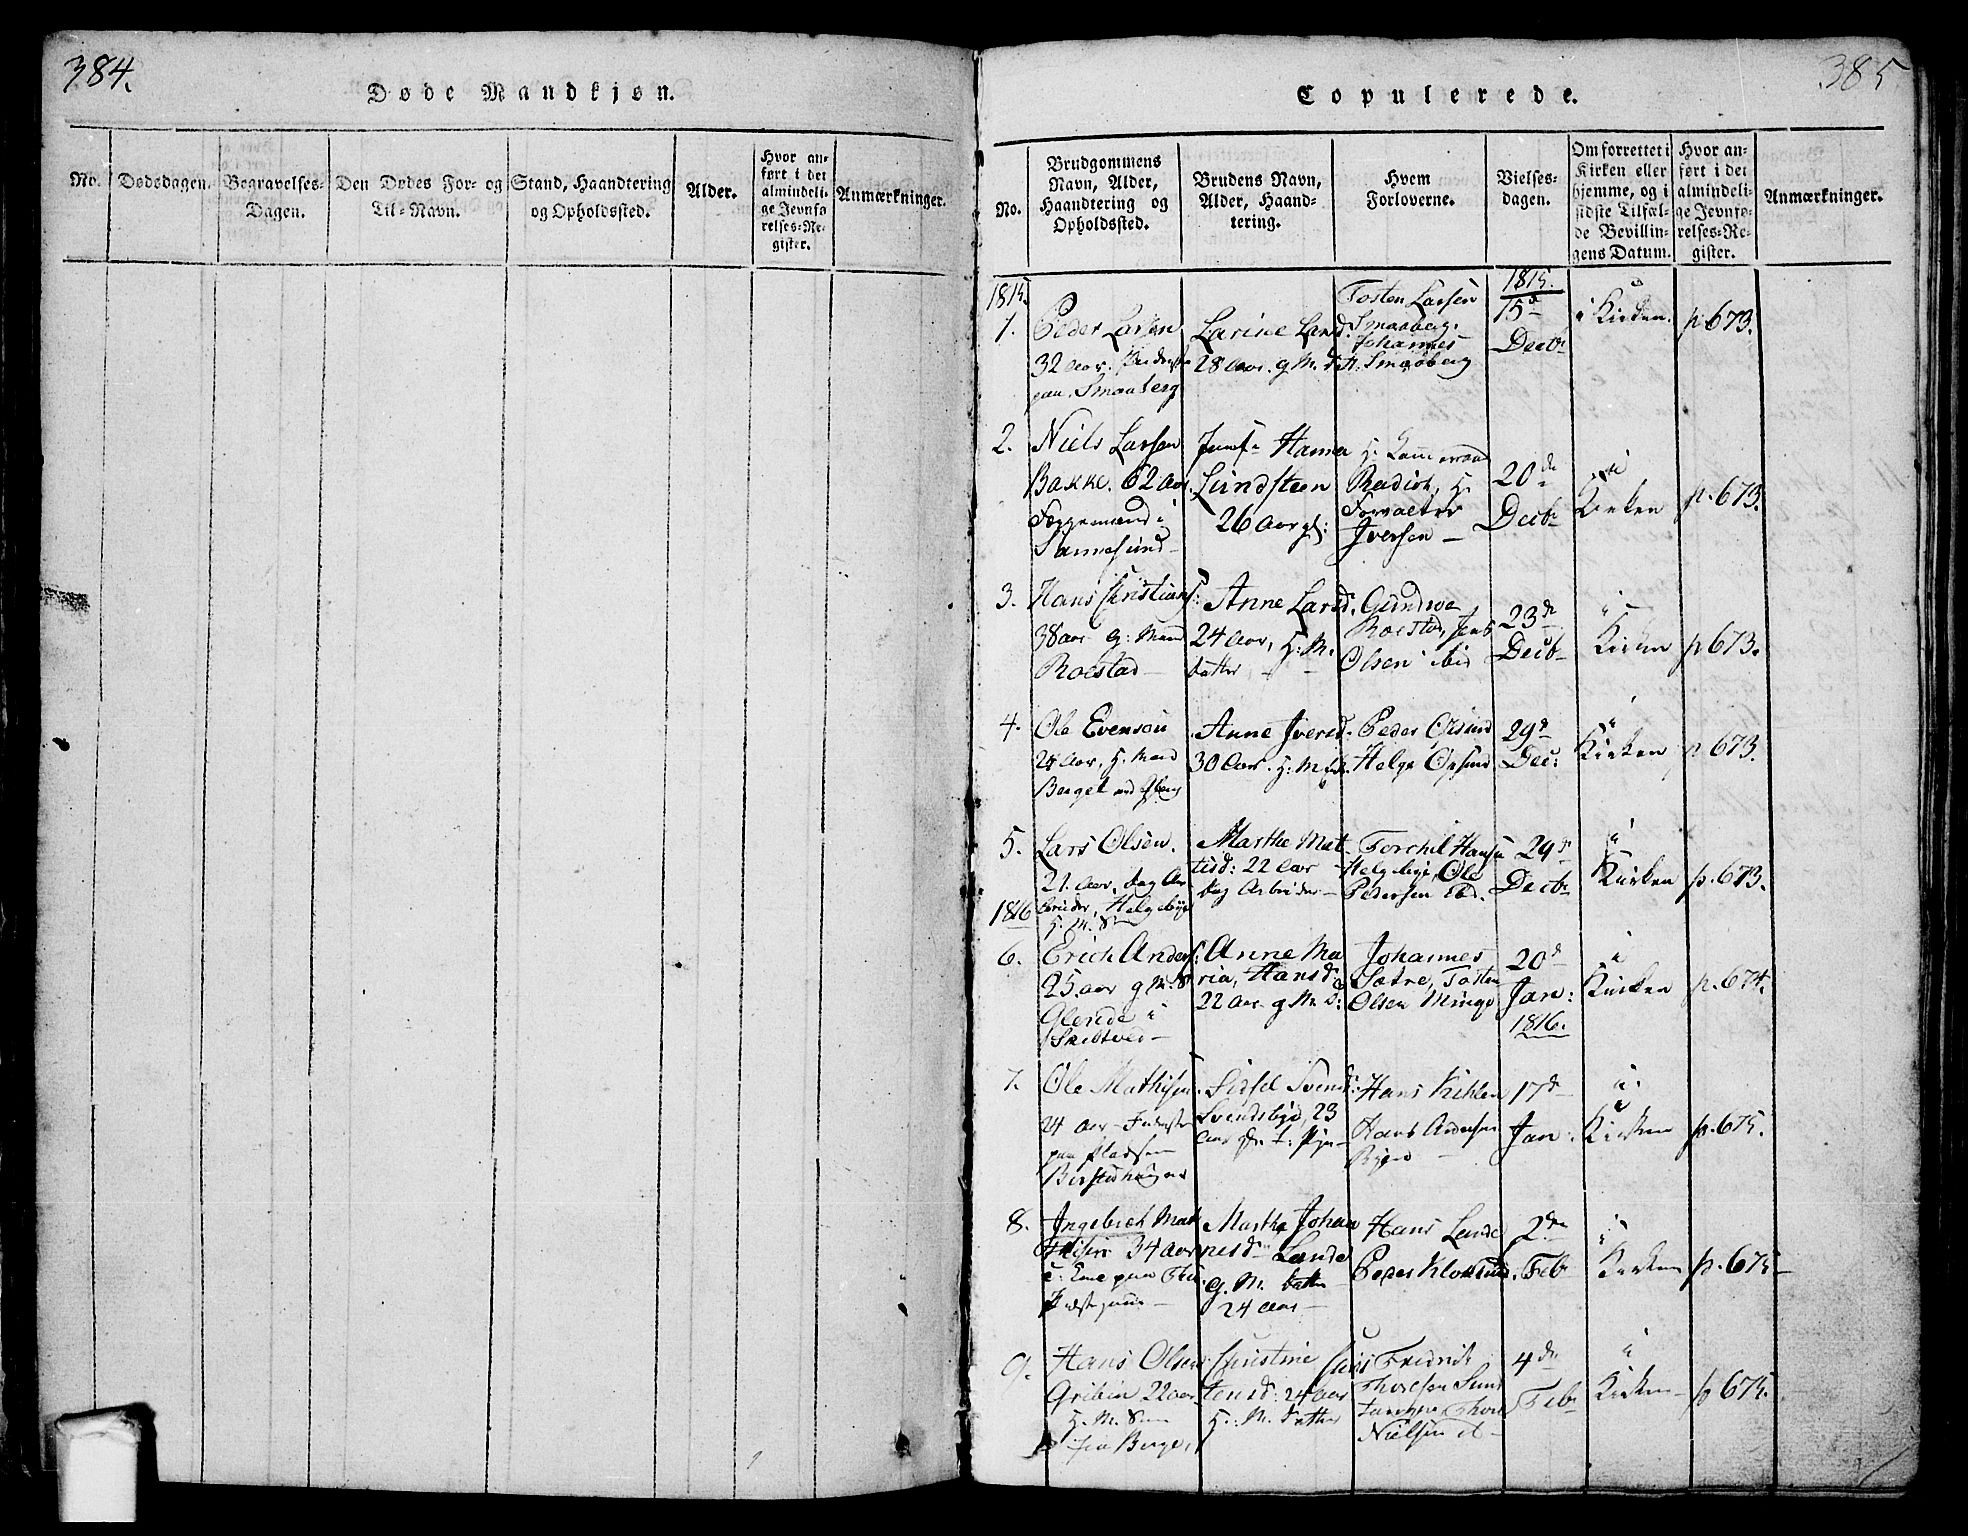 384.
Døde Mandkjøn.
No.
Dødedagen.
Begravelses-
Dagen.
Den Dødes For- og
Til-Navn.
Stand, Haandtering
og Opholdssted.
Alder.
Hvor an-
ført i det
almindeli-
ge Jevnfø-
relses-Re-
gister.
Anmærkninger.
385
Copulerede.
No.
Brudgommens
Navn, Alder,
Haandtering og
Opholdssted.
Brudens Navn,
Alder, Haand-
tering.
Hvem
Forloverne.
Vielses-
dagen.
Om forrettet i
Kirken eller
hjemme, og i
sidste Tilfæl-
de Bevillin-
gens Datum.
Hvor an-
ført i det
almindeli-
ge Jevnfø-
relses-Re-
gister.
Anmærkninger.
1815.
1.
Peder Larsen
32 aar.
paa Smaaberg
Larine Land
28 aar. g M. d
Tosten Larsen
Smaaberg.
Johannes
Smaaberg
1815.
15d
Decbr
i Kirken.
p. 673.
2.
Niels Larsen
Bakke. 62 aar.
Færgemand i
Sannesund
Jomf. Hanna
Lundsteen
26 aar gl:
H. Kammerraad
Radich, H.
Forvalter
Iversen
20de
Decbr
i
Kirken
p. 673.
3.
Hans Christians:
38 aar g: Mand
Roestad
Anne Larsd.
24 aar, H: M.
datter
Gundroe
Roestad, Jens
Olsen ibid
23de
Decb
i
Kirken
p 673.
4.
Ole Evensøn
24 aar, H. Mand
Berget
Anne Iversd.
30 aar. H: M
Peder Ørsund
Helge Ørsund
29d
Dec:
i
Kirken
p 673.
5.
Lars Olsen.
21. aar, dag Ar
beider, Helgebye
H. M. Søn
Marthe Mat
tisd: 22 aar
dag Arbeider
Torchil Hansen
Helgebye, Ole
Pedersen ibd.
29de
Decbr
i
Kirken
p. 673.
1816
6.
Erich Anders:
25. aar g M. S
Glende i
Skibtved
Anne Ma
ria, Hansd.
22 aar g M D:
Johannes
Sætre, Tosten
Olsen Minge
20d
Jan:
1816.
i
Kirken
p. 674.
7.
Ole Mathisen
24 aar
paa Pladsen
Sidsel Svend:
Svendsbye, 23
aar
Hans Kihlen
Hans Andersen
17d
Jan:
i
Kirken
p. 675.
8.
Ingebret Mat
thisen 34 aar
Marthe Johan
nesd Lande
g. M. datter
24 aar
Hans Lande
Peder Kloksund
2den
Feb
i
Kirken
p. 675
9.
Hans Olsen
22 aar
H. M. Søn
fra Berge,
Christine Chris
tensd: 24 aar
H: M. datter
Fredrik
Thoresen Sund
Thore
Nielsen
4de
Feb
i
Kirken
p 675.